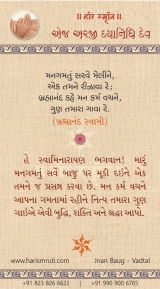 ॥ હરિ સ્મૃતિ ॥
એજ અરજી દયાનિધિ દેવ
મનગમતું સરવે મેલીને,
એક તમને રીઝાવા રે;
બ્રહ્માનંદ કહે મન કર્મ વચને,
ગુણ તમારા ગાવા રે.
(બ્રહ્માનંદ સ્વામી)
હે સ્વામિનારાયણ ભગવાન! મારું
મનગમતું સર્વે બાજુ પર મૂકી દઇને એક
તમને જ પ્રસન્ન કરવા છે. મન કર્મ વચને
આપના ગમતામાં રહીને નિત્ય તમારા ગુણ
ગાઇએ એવી બુદ્ધિ, શક્તિ અને શ્રદ્ધા આપો.
www.harismruti.com
Jnan Baug - Vadtal
+91 823 826 6622
+91 990 900 6765